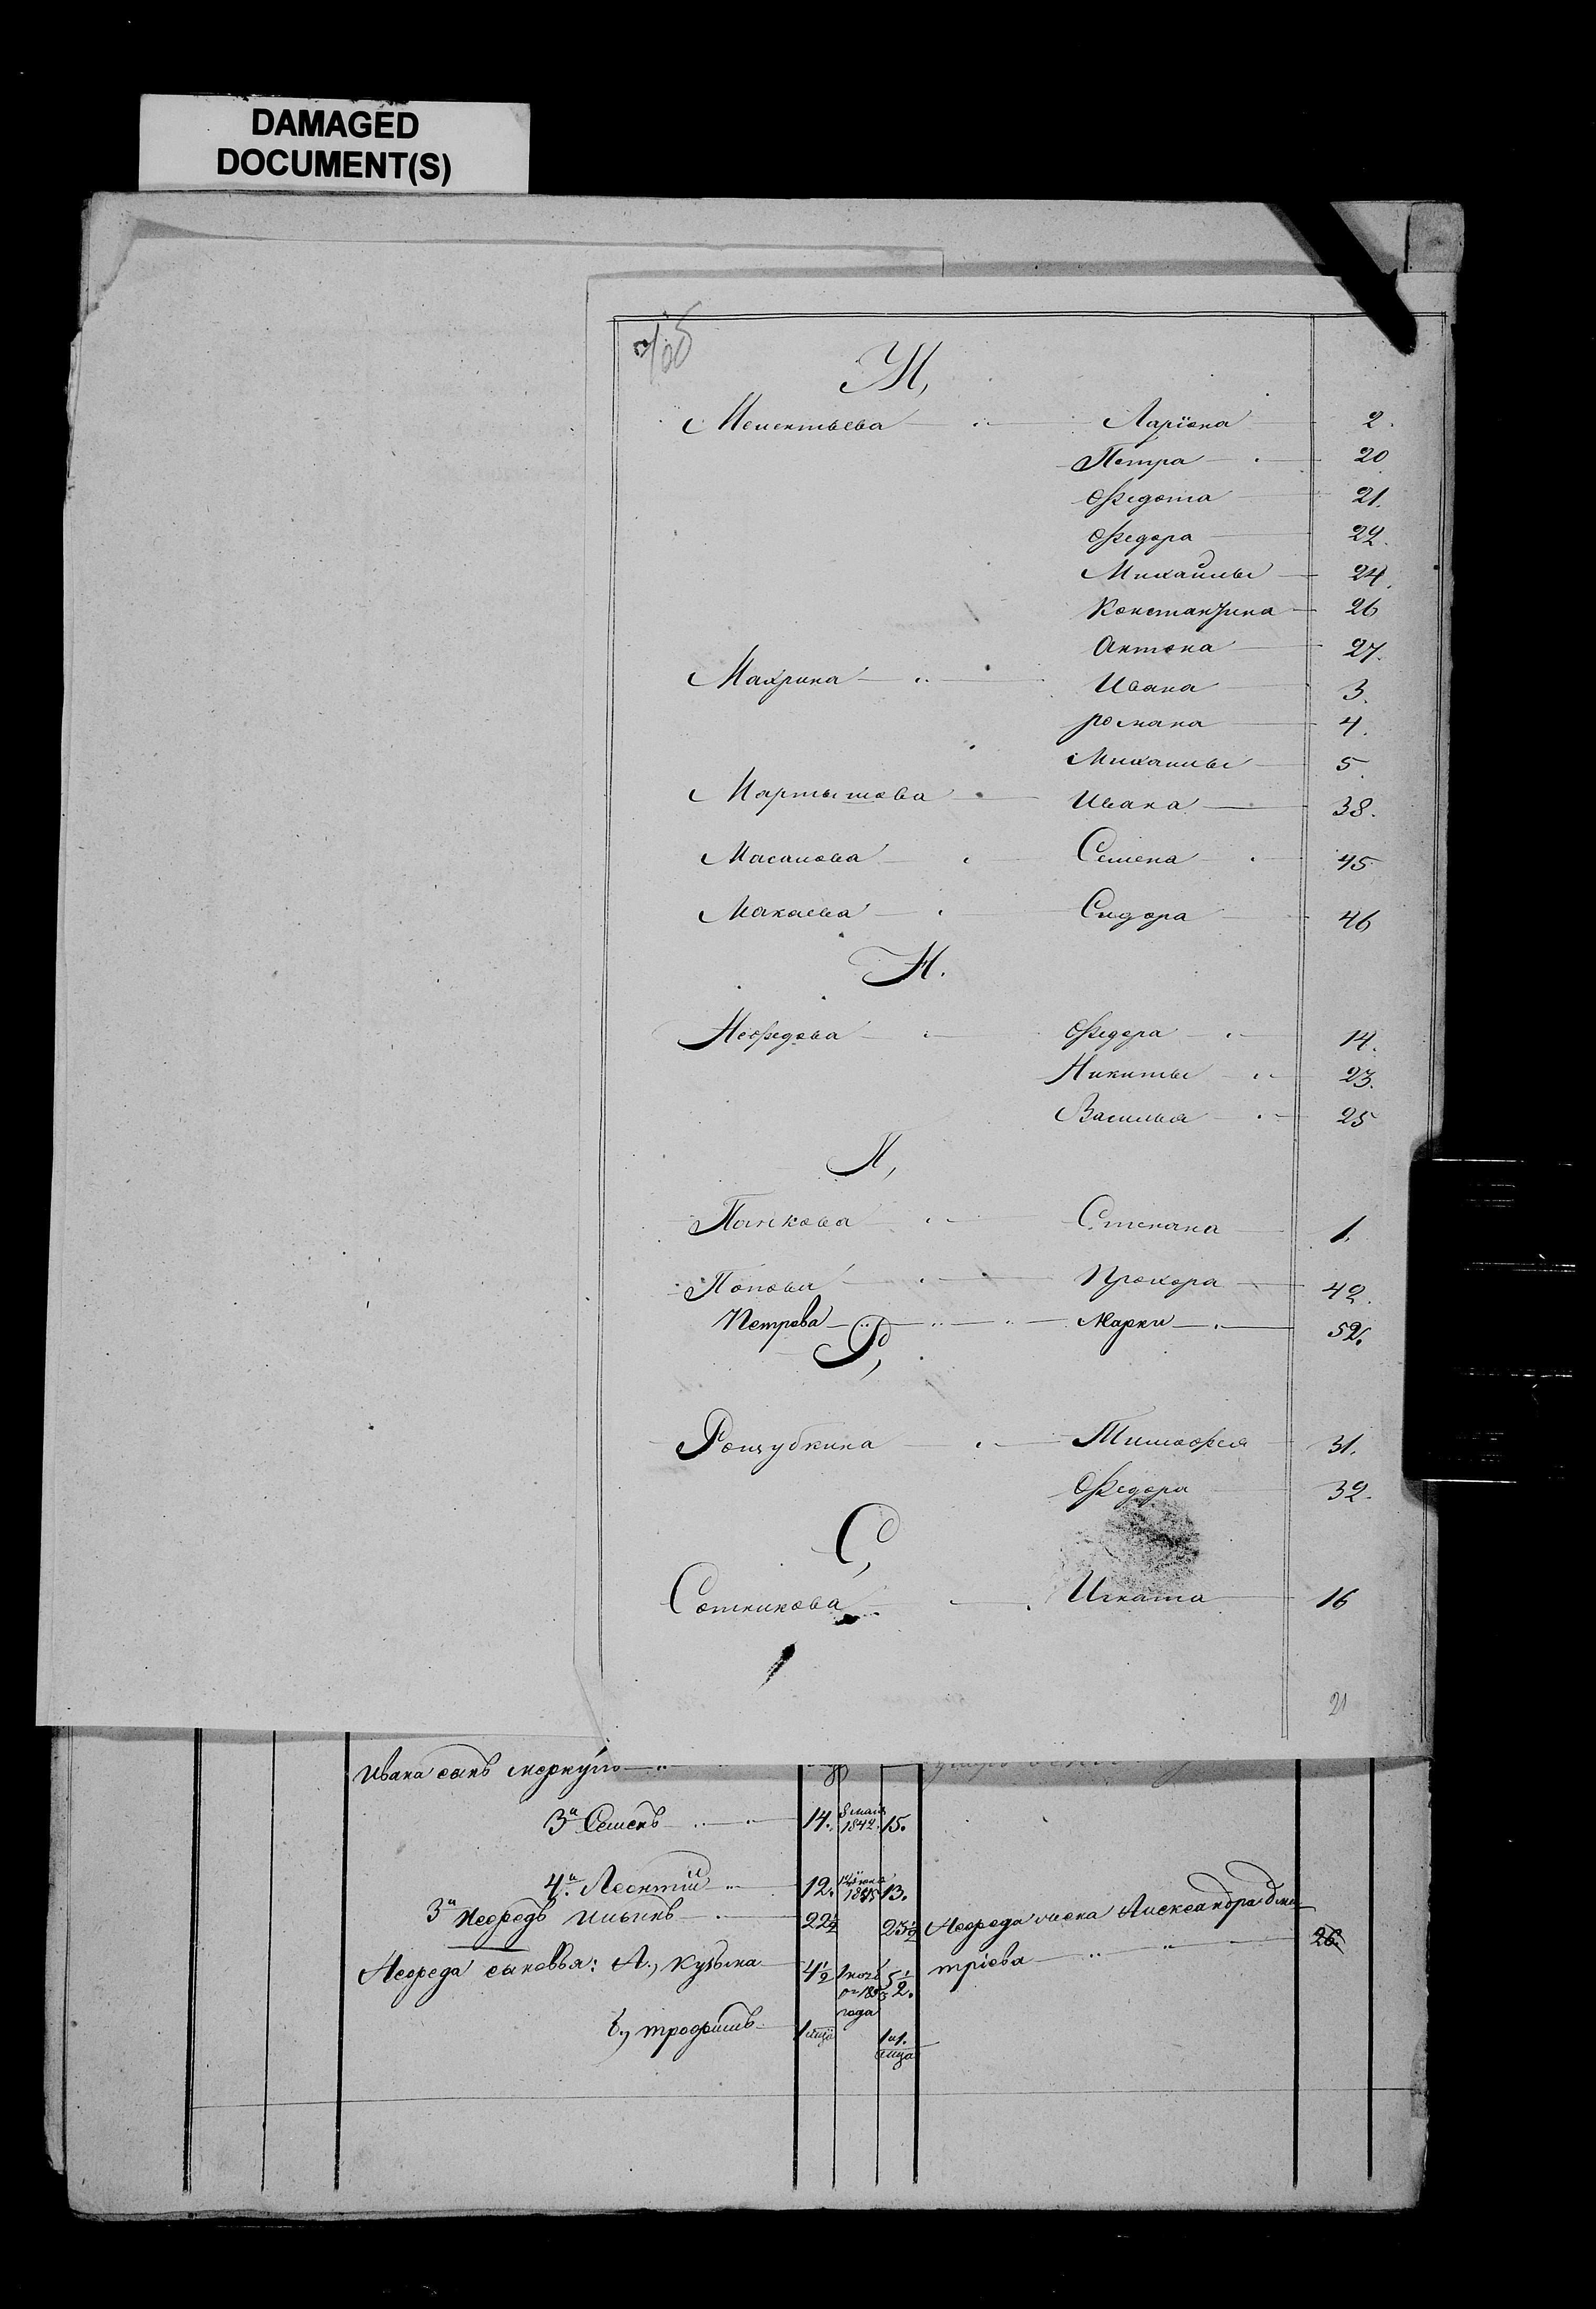 DAMAGED
DOCUMENT(S)
М,
Мелентьева Ларіона 2.
Петра 20
Федота 21.
Федора 22.
Михайлы 24.
Константина 26
Антона 27.
Махрина Ивана 3.
романа 4.
Михаилы 5.
Мартышова Ивана 38.
Масалова Семена 45
Макаева Сидора 46
Н.
Нефедова Федора 14.
Никиты 23.
Василья 25
П,
Панкова Степана 1.
Попова Прохора 42.
Петрова Марки 52.
Р,
Рощубкина Тимофея 31.
Федора 32.
С,
Сотникова Игната 16
21
Ивана сынъ меркулъ
3й Семенъ 14. 8 мая 1842. 15.
4й. Леонтій 12. 13.
3й Нефедъ Ильинъ 22½ 23½ Нефеда жена Александра дми
Нефеда сыновья: А., Кузьма 4½ 5½. тріева 26
Б., трофимъ